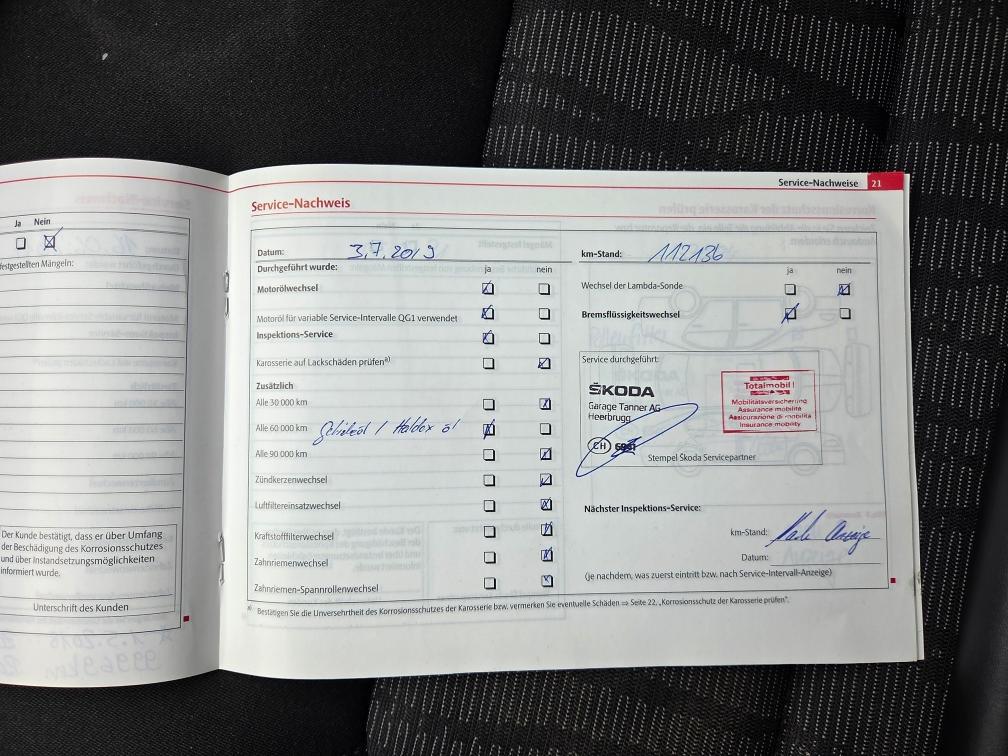 Service-Nachweise 21
Ja Nein
festgestellten Mängeln:
Der Kunde bestätigt, dass er über Umfang
der Beschädigung des Korrosionsschutzes
und über Instandsetzungsmöglichkeiten
informiert wurde.
Unterschrift des Kunden
Service-Nachweis
Datum: 3.7.2019
Durchgeführt wurde: ja nein
Motorölwechsel
Motoröl für variable Service-Intervalle QG1 verwendet
Inspektions-Service
Karosserie auf Lackschäden prüfen a)
Zusätzlich
Alle 30 000 km
Alle 60 000 km / Haldex öl
Alle 90 000 km
Zündkerzenwechsel
Luftfiltereinsatzwechsel
Kraftstofffilterwechsel
Zahnriemenwechsel
Zahnriemen-Spannrollenwechsel
km-Stand: 112136
ja nein
Wechsel der Lambda-Sonde
Bremsflüssigkeitswechsel
Service durchgeführt:
ŠKODA
Garage Tanner AG
Heerbrugg
CH
Totalmobil!
Mobilitätsversicherung
Assurance mobilité
Assicurazione di mobilità
Insurance mobility
Stempel Škoda Servicepartner
Nächster Inspektions-Service:
km-Stand: Anzeige
Datum:
(je nachdem, was zuerst eintritt bzw. nach Service-Intervall-Anzeige)
a) Bestätigen Sie die Unversehrtheit des Korrosionsschutzes der Karosserie bzw. vermerken Sie eventuelle Schäden ⇒ Seite 22, „Korrosionsschutz der Karosserie prüfen".